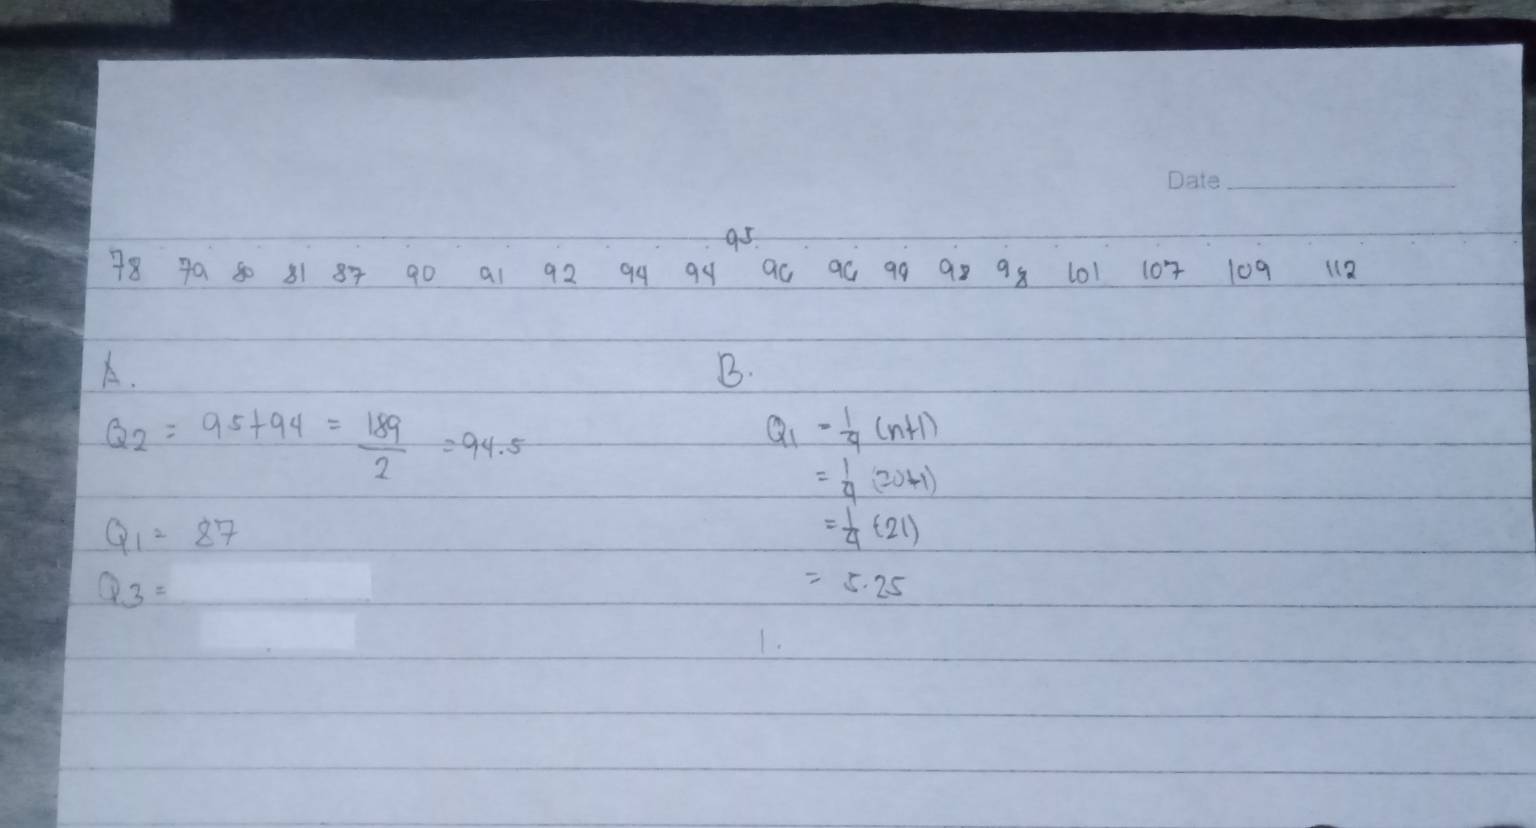 Date
95
78 79 80 81 87 90 91 92 94 94 96 96 98 98 101 107 109 112
A. B.
Q2 = 95+94 = 189/2 = 94.5
Q1 = 1/4 (n+1)
= 1/4 (20+1)
Q1 = 87
= 1/4 (21)
Q3 =
= 5.25
1.